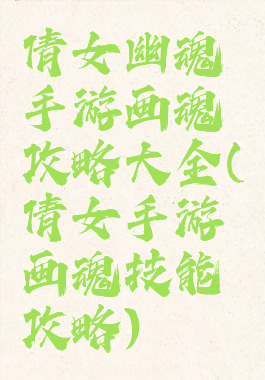 倩女幽魂
手游画魂
攻略大全(
倩女手游
画魂技能
攻略)